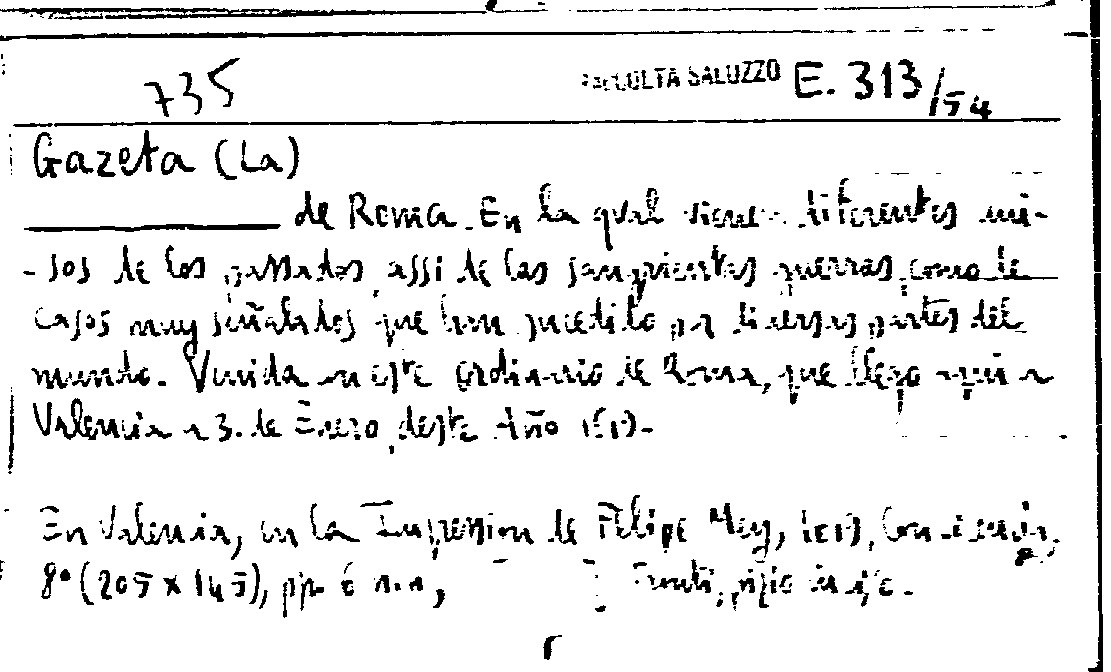 735 RACCOLTA SALUZZO E. 313/54
Gazeta (La)
de Roma. En la qual vienen diferentes avi-
-sos de los passados, assi de las sangrientas guerras, como de
casos muy señalados que han sucedido por diversas partes del
mundo. Venida en este ordinario de Roma, que llego aqui a
Valencia a 3. de Enero, deste Año
En Valencia, en la Impression de Felipe Mey,
8º (205 x 145), pp. 6 n.n,